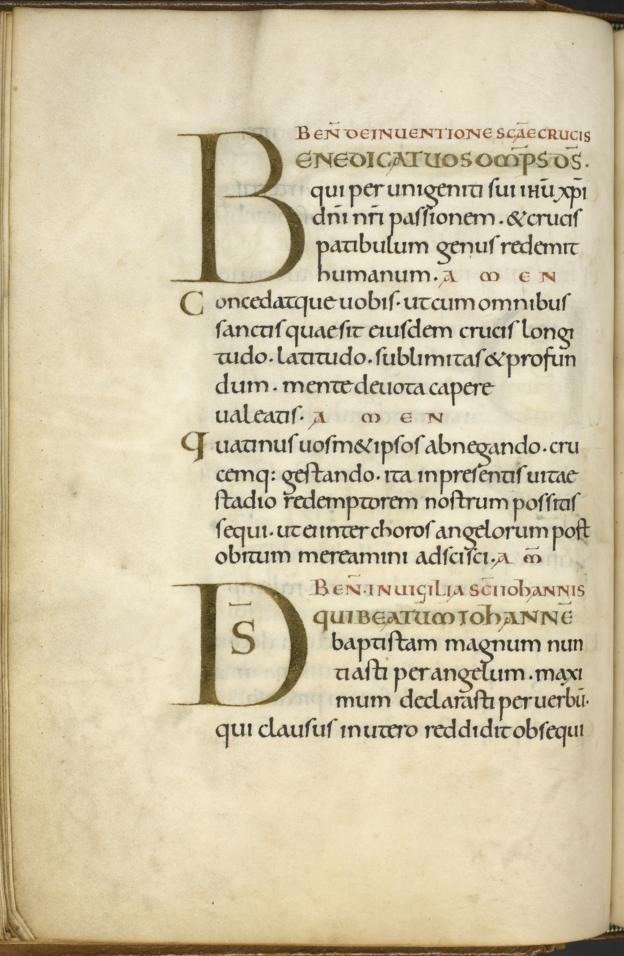 BEN̄ DE INUENTIONE SC̄AE CRUCIS
BENEDICAT UOS OM̄PS D̄S.
qui per unigeniti sui ih̄u xp̄i
dn̄i nr̄i passionem. & crucis
patibulum genus redemit
humanum. A M E N
Concedatque uobis. ut cum omnibus
sanctis quae sit eiusdem crucis longi
tudo. latitudo. sublimitas & profun
dum. mente deuota capere
ualeatis. A M E N
Quatinus uosm&ipsos abnegando. cru
cemq: gestando. ita in presentis uitae
stadio redemptorem nostrum possitis
sequi. ut ei inter choros angelorum post
obitum mereamini adscisci. A M̄
BEN̄. IN UIGILIA SC̄I IOHANNIS
D̄S QUI BEATUM IOHANNĒ
baptistam magnum nun
tiasti per angelum. maxi
mum declarasti per uerbū.
qui clausus in utero reddidit obsequi